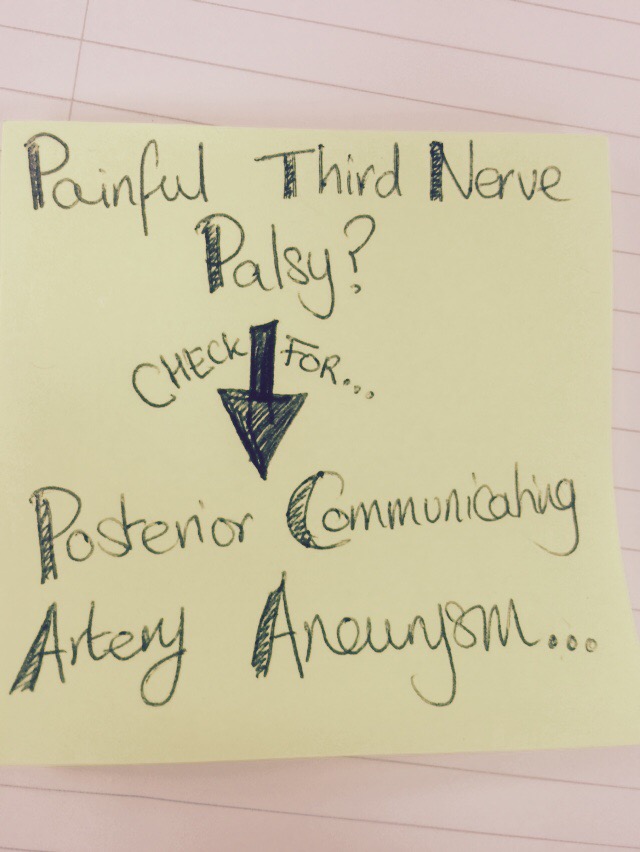 Painful Third Nerve
Palsy?
CHECK FOR...
Posterior Communicating
Artery Aneurysm...